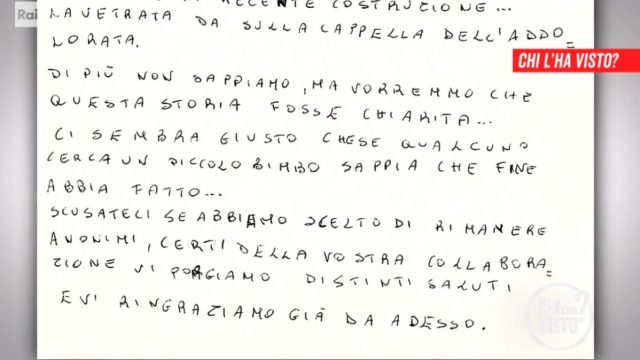 Rai
DI RECENTE COSTRUZIONE...
LA VETRATA DA SULLA CAPPELLA DELL'ADDO=
LORATA.
CHI L'HA VISTO?
DI PIÙ NON SAPPIAMO, MA VORREMMO CHE
QUESTA STORIA FOSSE CHIARITA...
CI SEMBRA GIUSTO CHE SE QUALCUNO
CERCA UN PICCOLO BIMBO SAPPIA CHE FINE
ABBIA FATTO...
SCUSATECI SE ABBIAMO SCELTO DI RIMANERE
ANONIMI, CERTI DELLA VOSTRA COLLABORA=
ZIONE VI PORGIAMO DISTINTI SALUTI
E VI RINGRAZIAMO GIÀ DA ADESSO.
CHI L'HA VISTO?